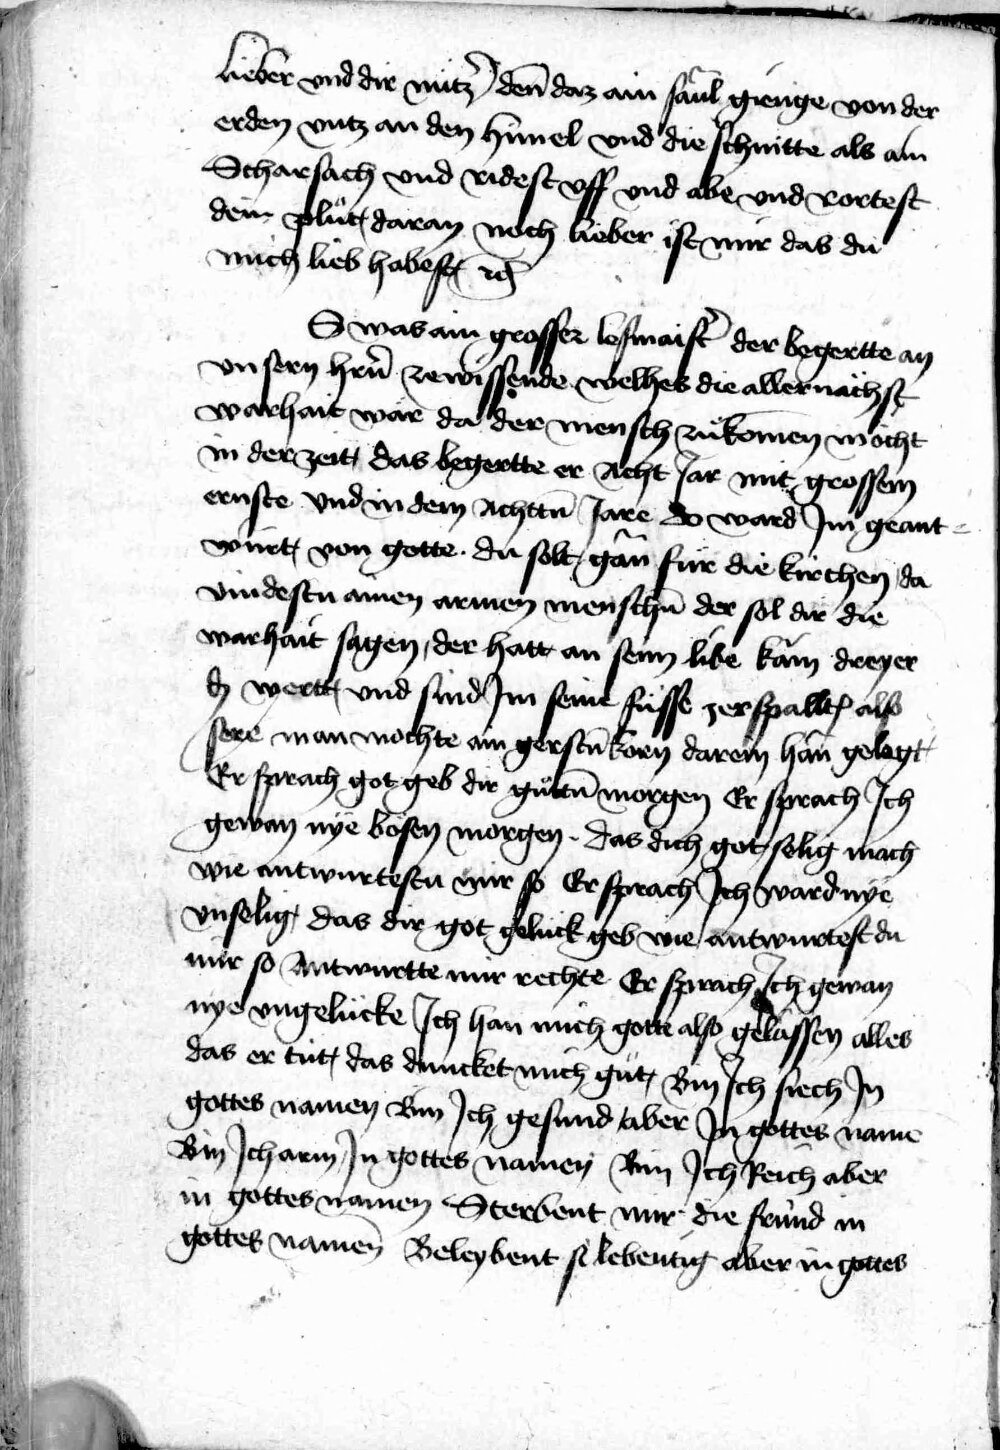 lieber vnd dir nütz͛ den̄ daz ain saͤul gienge von der
erden vntz an den himel vnd die schnitte als ain
Scharsach vnd ridest vff vnd abe vnd rortest
dein pluͦt daran noch lieber ist mir das du
mich lieb habest
S was ain grosser lesmaist͛ der begertte an
vnsern hrn̄ ze wissende welhes die allernächst
warhait wär da der mensch zuͦkomen möcht
in der zeitt das begertte er Acht Jar mit grossem
ernste vnd in dem Achttn̄ Jare do ward Jm geant=
würt von gotte. du solt gān für die kirchen da
vindestu ainen armen menschn̄ der sol dir die
warhait sagen, der hatt an seim libe kām dreyer
₰ wertt vnd sind Jm seine füsse zerspallt͛ also
sere man mochte ain gerstn̄ korn darein hān gelegt
Er sprach got geb dir guͦttn̄ morgen Er sprach Jch
gewan nye bösen morgen. das dich got selig mach
wie antwurtestu mir so Er sprach Jch ward nye
vnselig das dir got gelück geb wie antwurtest du
mir so Antwurtte mir rechte Er sprach Jch gewan
nye vngelücke Jch han mich gotte also gelässen alles
das er tüt das duncket mich guͦt Bin Jch siech Jn
gottes namen Bin Jch gesund aber Jn gottes name
Bin Jch arm Jn gottes namen Bin Jch Reich aber
in gottes namen Sterbent mir die fründ in
gottes namen̄ Beleybent si lebentig aber in gottes